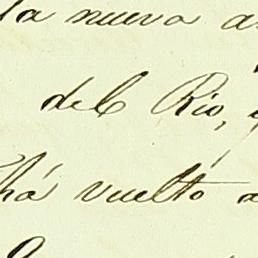 la nueva a
del Rio, 
há vuelto a